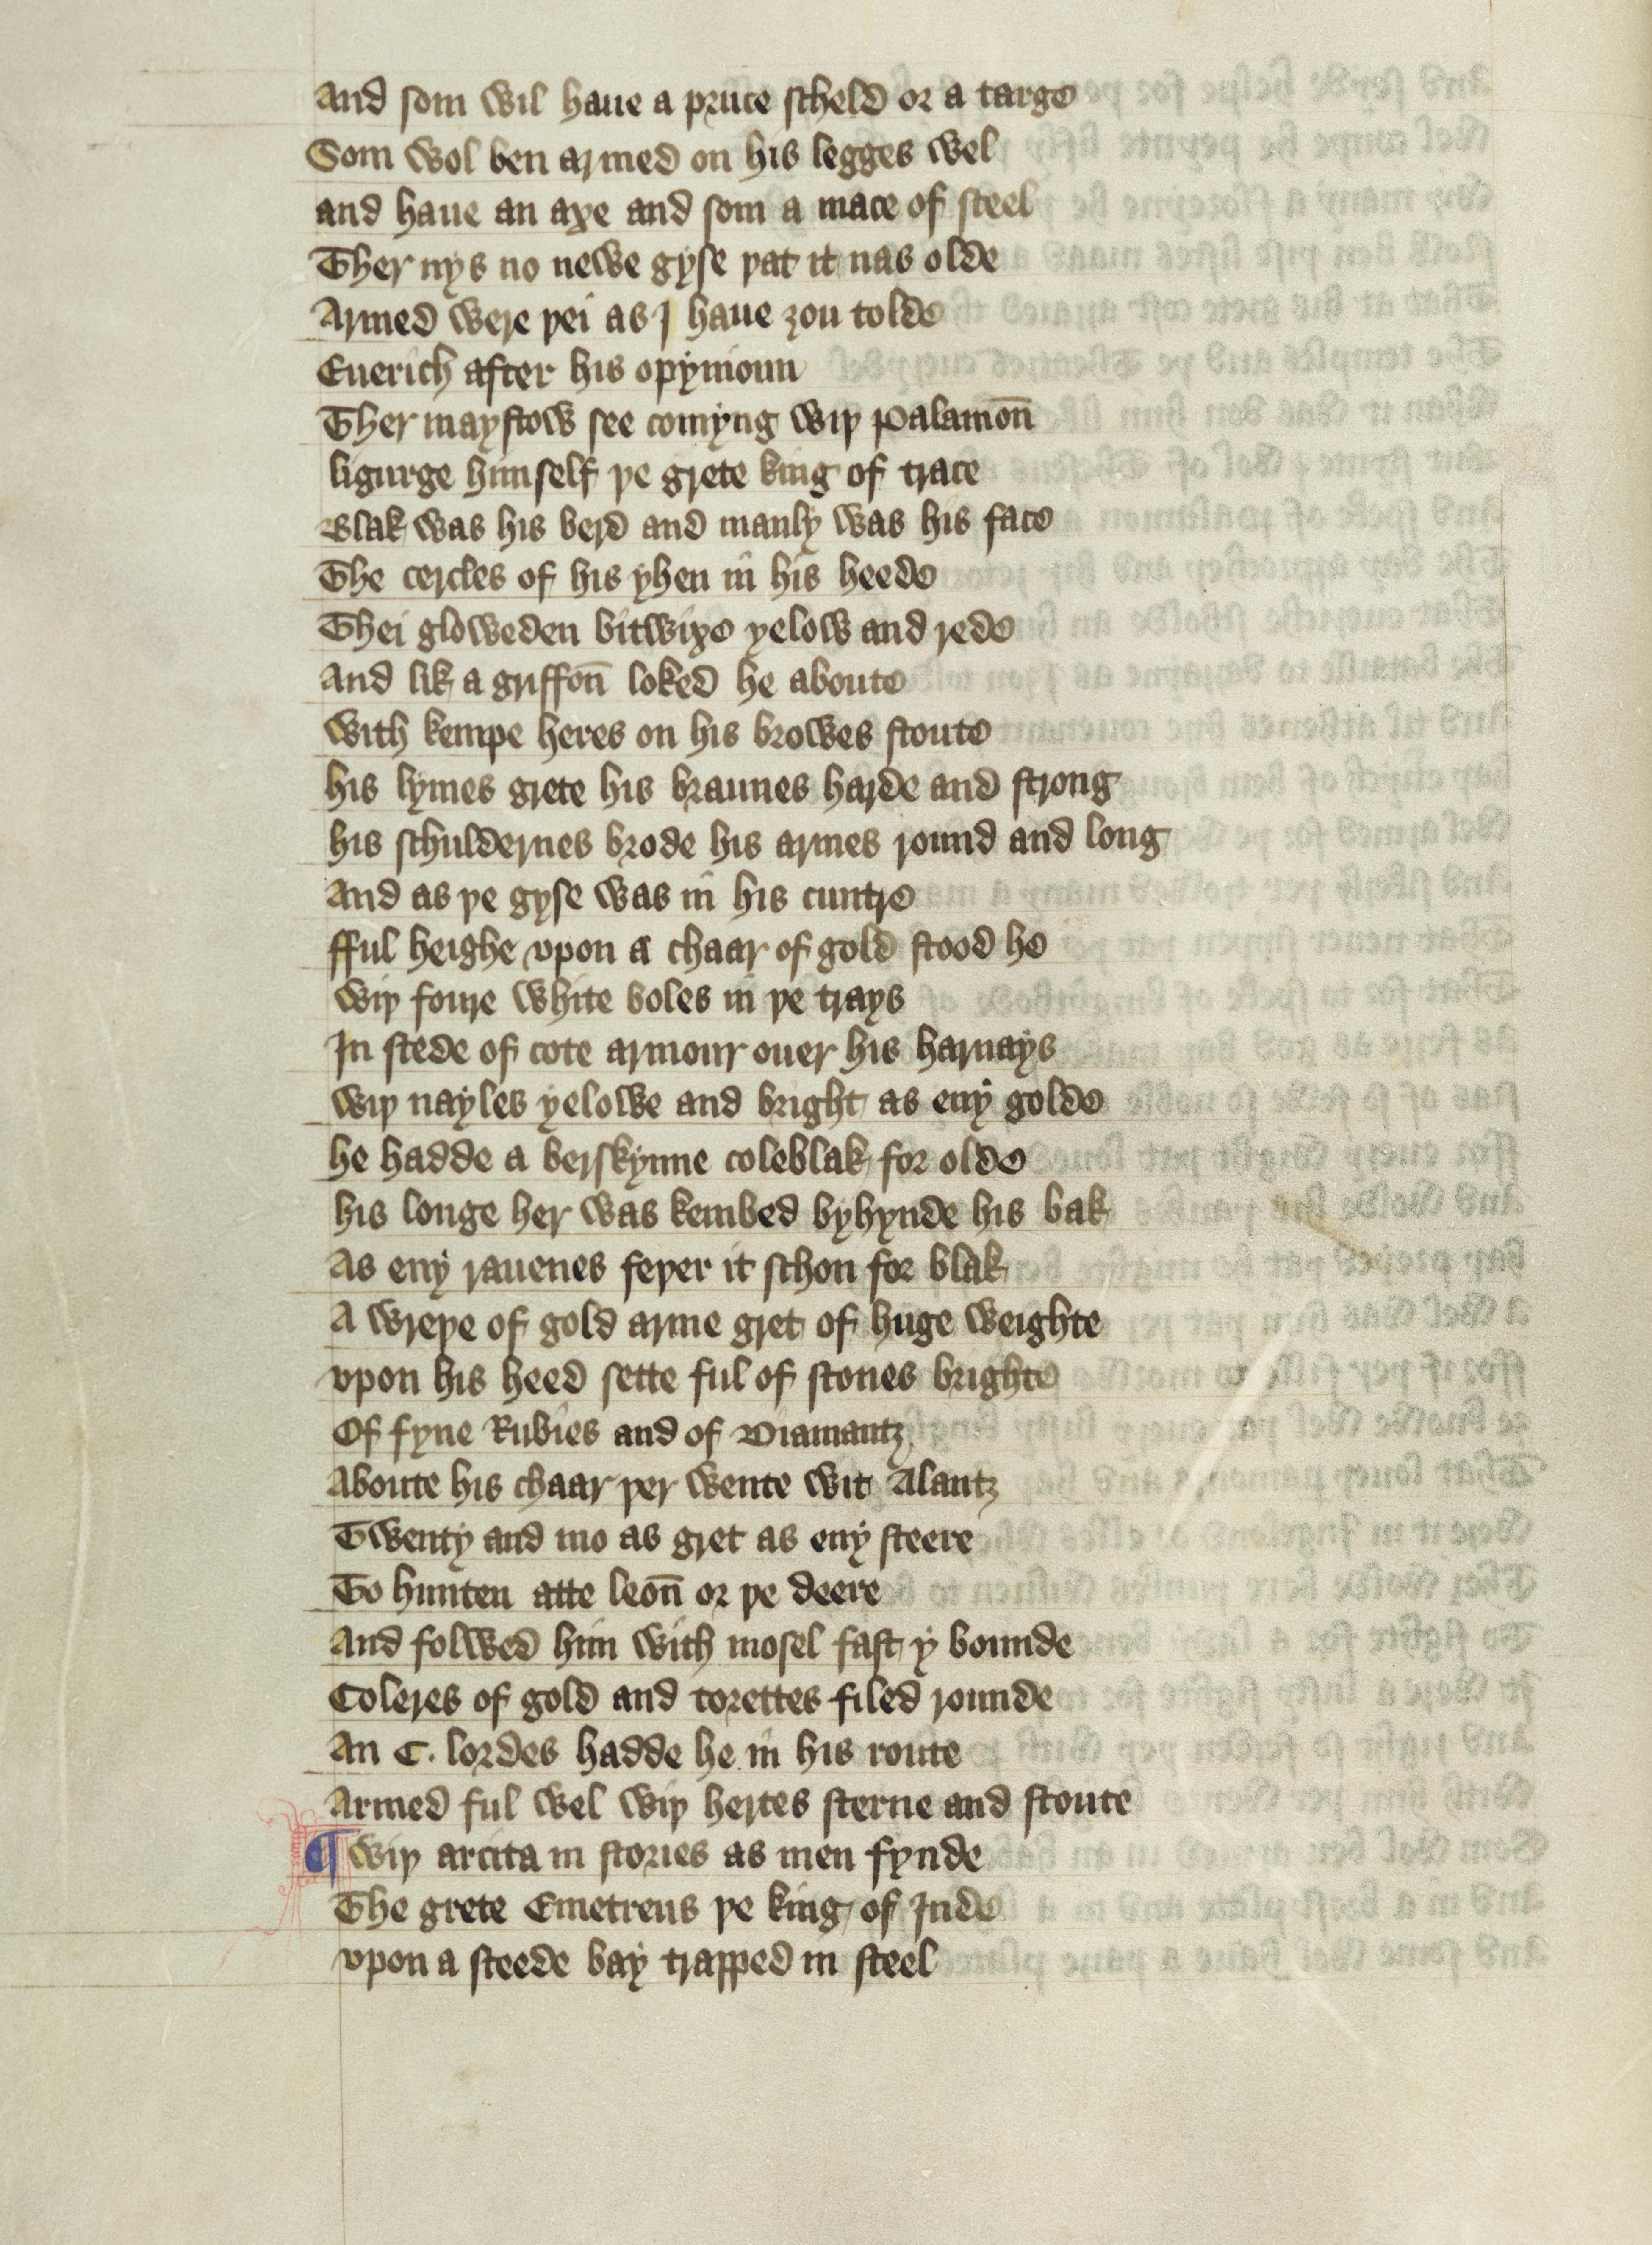 And som wil haue a pruce scheld or a targe
Som wol ben armed on his legges wel
and haue an axe and som a mace of steel
Ther nys no newe gyse þat it nas olde
Armed were þei as I haue ȝou tolde
Euerich after his opynioun
Ther maystow see comyng wiþ Palamon̄
ligurge himself þe grete king of trace
Blak was his berd and manly was his face
The cercles of his yhen in his heede
Thei gloweden bitwixe yelow and rede
And lik a griffon̄ loked he aboute
with kempe heres on his browes stoute
his lymes grete his braunes harde and strong
his schuldernes brode his armes round and long
And as þe gyse was in his cuntre
fful heighe vpon a chaar of gold stood he
wiþ foure white boles in þe trays
In stede of cote armour ouer his harnays
wiþ nayles yelowe and bright as eny golde
he hadde a berskynne coleblak for olde
his longe her was kembed byhynde his bak
As eny rauenes feþer it schon for blak
A wreþe of gold arme gret of huge weighte
vpon his heed sette ful of stones brighte
Of fyne Rubies and of Diamantz
Aboute his chaar þer wente wit Alantz
Twenty and mo as gret as eny steere
To hunten atte leon̄ or þe deere
And folwed him with mosel fast y bounde
Coleres of gold and torettes filed rounde
An C. lordes hadde he in his route
Armed ful wel wiþ hertes sterne and stoute
¶ wiþ arcita in stories as men fynde
The grete Emetreus þe king of Inde
vpon a steede bay trapped in steel